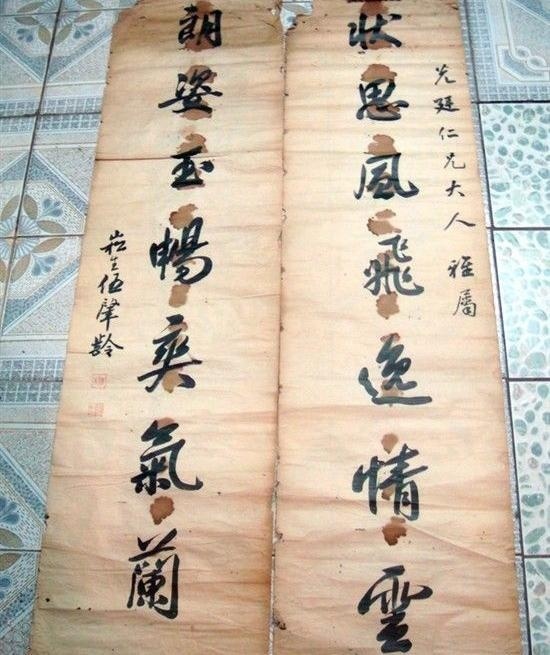 光廷仁兄大人雅屬
狀思風飛逸情雲
朗姿玉暢爽氣蘭
崧生伍肇齡